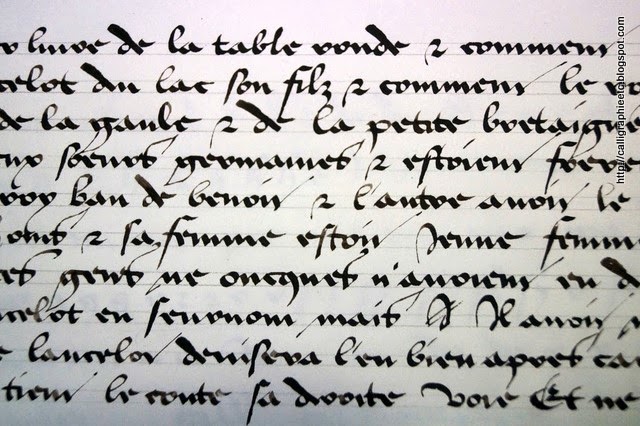 livre de la table ronde & comment
celot du lac son filz & comment le ro
de la gaule & de la petite bretaigne
eux soeurs germaines & estoient freres
roy ban de benoit & l'autre avoit le
& sa femme estoit Jeune femm
ces gens ne oncques n'avoient eu d
ncelot en seurnom mais Il avoit
e lancelot devisera l'en bien apres ca
tient le conte sa droite voie Et ne
http://calligraphieetc.blogspot.com